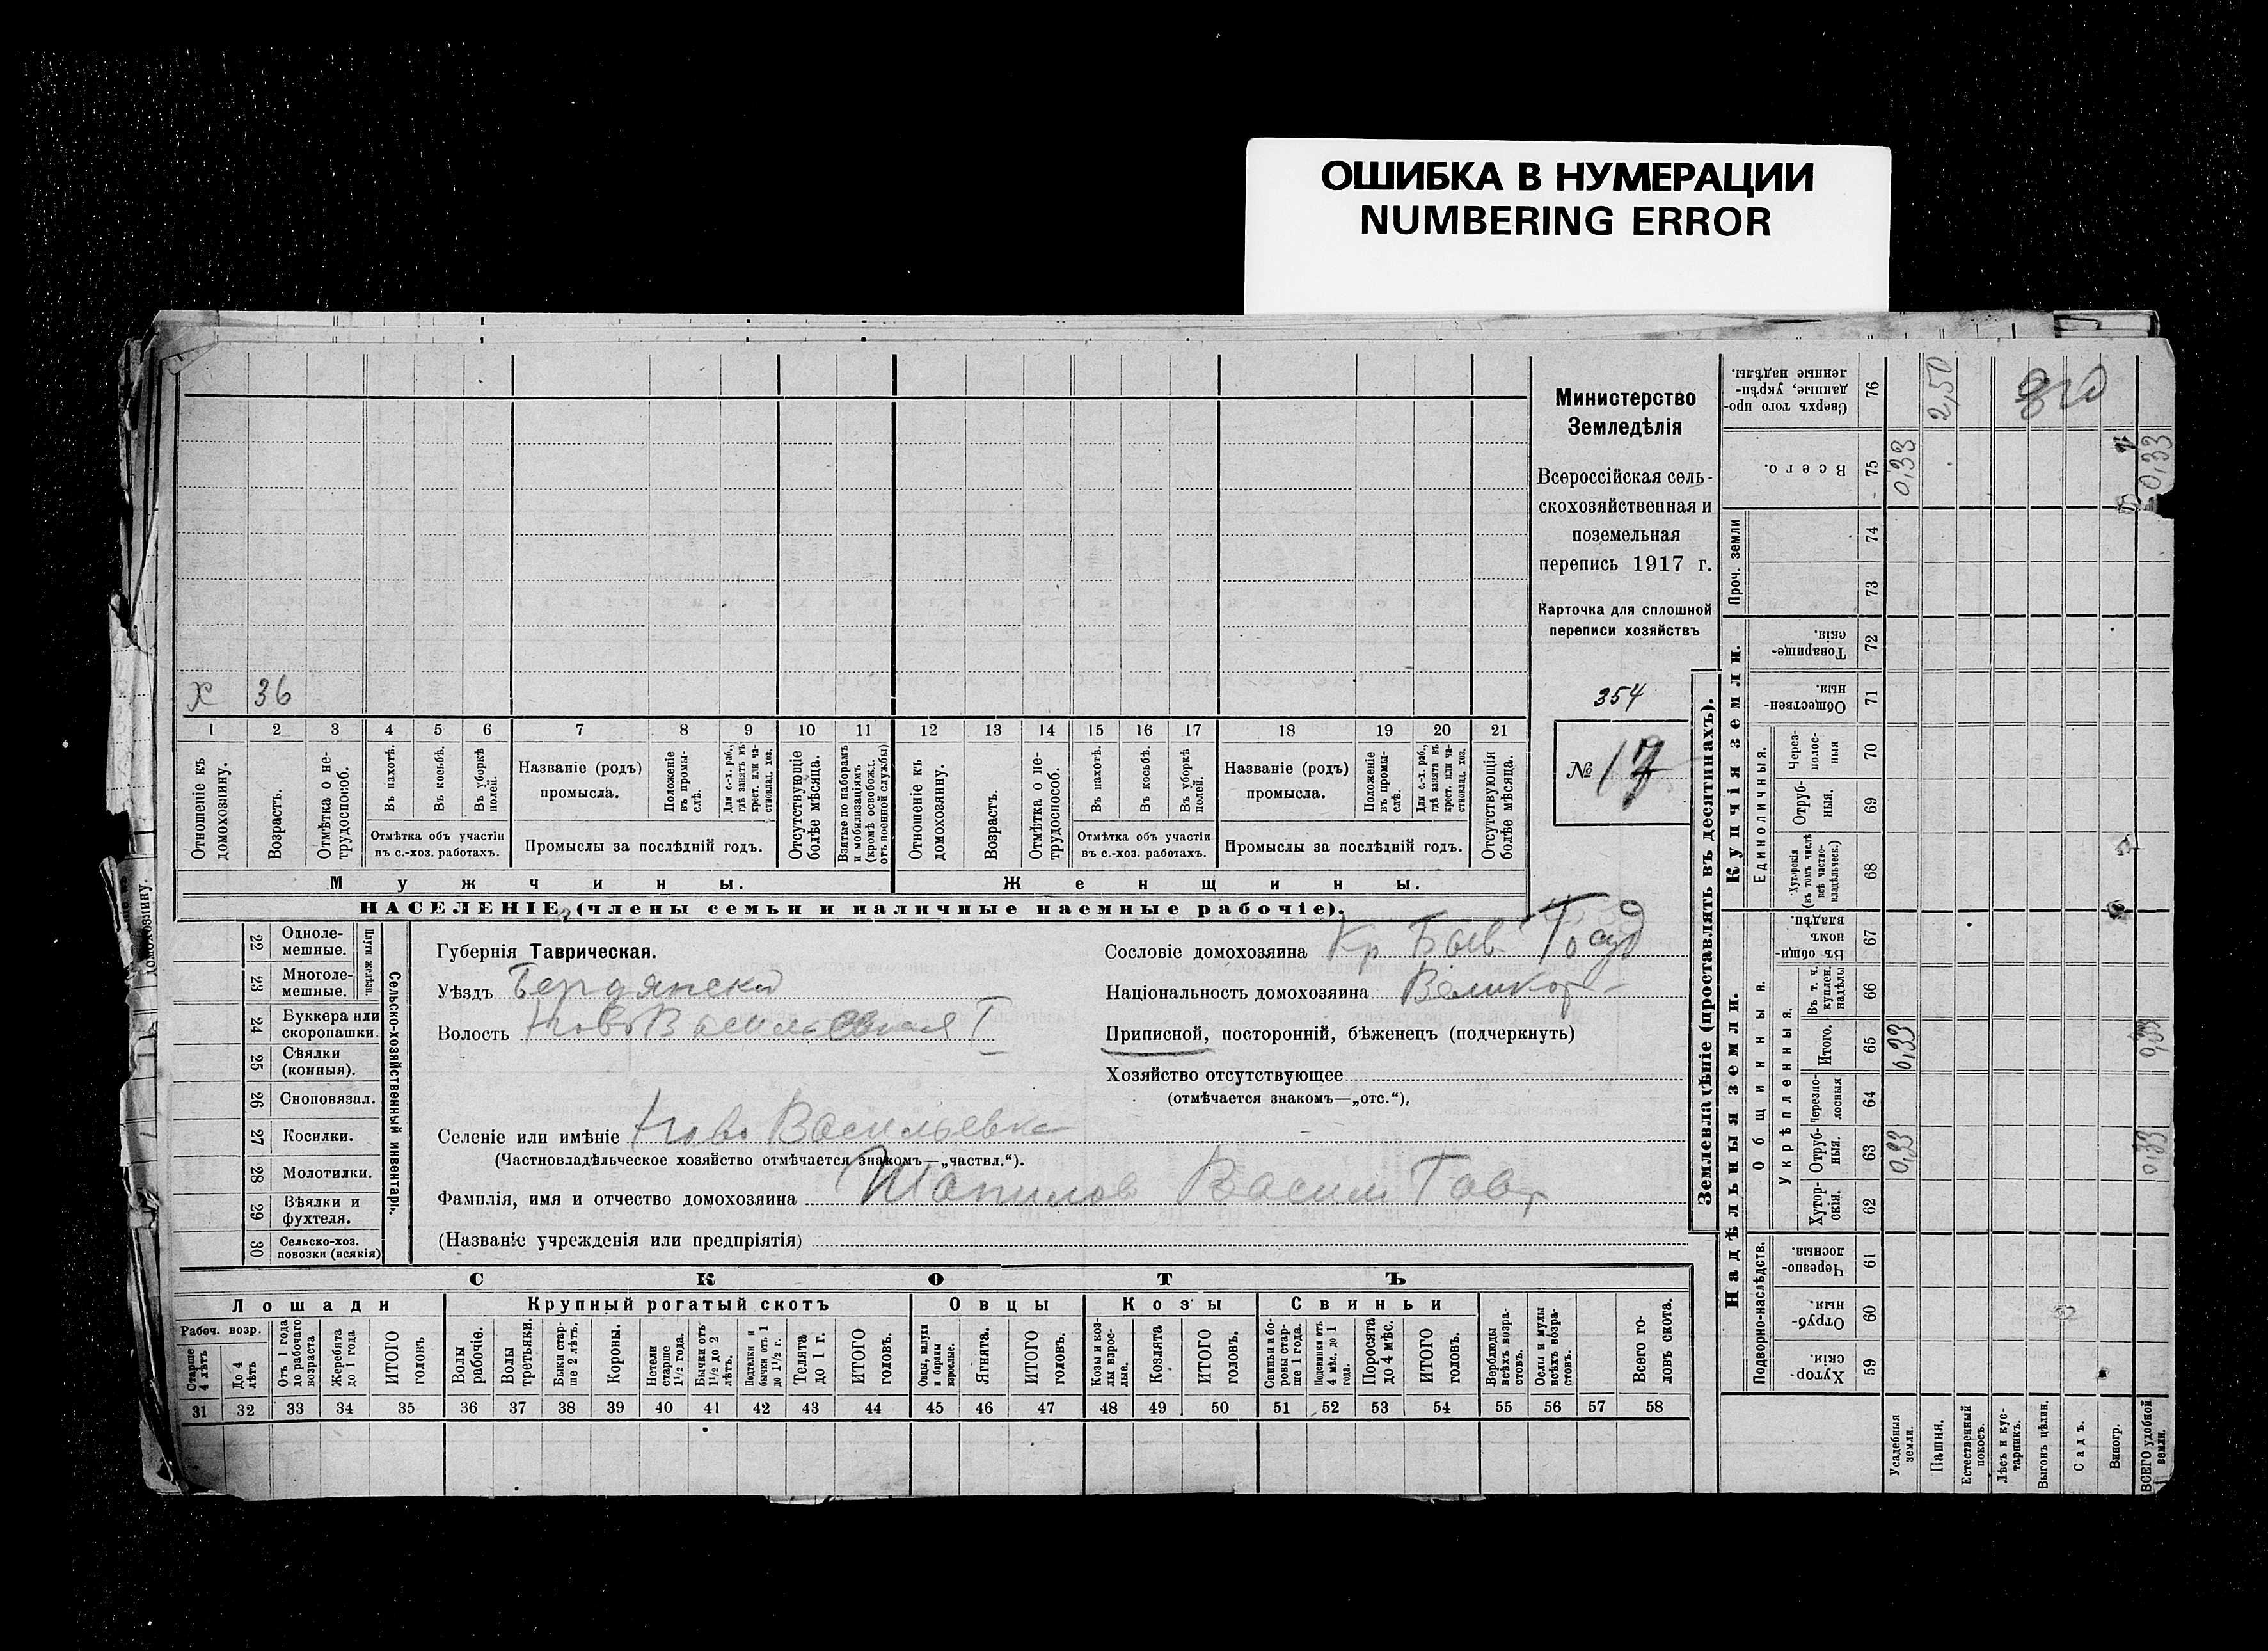 ОШИБКА В НУМЕРАЦИИ
NUMBERING ERROR
х 36
1 2 3 4 5 6 7 8 9 10 11 12 13 14 15 16 17 18 19 20 21
Отношеніе къ домохозяину.
Возрастъ.
Отмѣтка о нетрудоспособ.
Въ пахотѣ.
Въ косьбѣ.
Въ уборкѣ полей.
Отмѣтка объ участіи въ с.-хоз. работахъ.
Названіе (родъ) промысла.
Положеніе въ промыслѣ.
Для с.-х. раб., гдѣ занятъ въ крест. или частновлад. хоз.
Промыслы за послѣдній годъ.
Отсутствующіе болѣе мѣсяца.
Взятые по наборамъ и мобилизаціямъ (кромѣ освобожд. отъ военной службы)
Отношеніе къ домохозяину.
Возрастъ.
Отмѣтка о нетрудоспособ.
Въ пахотѣ.
Въ косьбѣ.
Въ уборкѣ полей.
Отмѣтка объ участіи въ с.-хоз. работахъ.
Названіе (родъ) промысла.
Положеніе въ промыслѣ.
Для с.-х. раб., гдѣ занята въ крест. или частновлад. хоз.
Промыслы за послѣдній годъ.
Отсутствующія болѣе мѣсяца.
Мужчины. Женщины.
НАСЕЛЕНІЕ (члены семьи и наличные наемные рабочіе).
Министерство
Земледѣлія
Всероссійская сель-
скохозяйственная и
поземельная
перепись 1917 г.
Карточка для сплошной
переписи хозяйствъ
354
№ 17
22 Одноле-мешные.
23 Многоле-мешные.
Плуги желѣзн.
24 Буккера или скоропашки.
25 Сѣялки (конныя).
26 Сноповязал.
27 Косилки.
28 Молотилки.
29 Вѣялки и фухтеля.
30 Сельско-хоз. повозки (всякія)
Сельско-хозяйственный инвентарь.
Губернія Таврическая.
Уѣздъ Бердянски
Волость Ново Васильевская I
Селеніе или имѣніе Ново Васильевка
(Частновладѣльческое хозяйство отмѣчается знакомъ—„частвл.“).
Фамилія, имя и отчество домохозяина Шапилов Васили Гавр
(Названіе учрежденія или предпріятія)
Сословіе домохозяина Кр Быв Госуд
Національность домохозяина Великор
Приписной, посторонній, бѣженецъ (подчеркнуть)
Хозяйство отсутствующее
(отмѣчается знакомъ—„отс.“).
СКОТЪ
Лошади Крупный рогатый скотъ Овцы Козы Свиньи
Рабоч. возр.
Старше 4 лѣтъ
До 4 лѣтъ
Отъ 1 года до рабочаго возраста
Жеребята до 1 года
ИТОГО головъ
Волы рабочіе.
Волы третьяки.
Быки старше 2 лѣтъ.
Коровы.
Нетели старше 1½ года.
Бычки отъ 1½ до 2 лѣтъ.
Подтелки и бычки отъ 1 до 1½ г.
Телята до 1 г.
ИТОГО головъ.
Овцы, валухи и бараны взрослые.
Ягнята.
ИТОГО головъ.
Козы и козлы взрослые.
Козлята
ИТОГО головъ.
Свиньи и боровы старше 1 года.
Подсвинки отъ 4 мѣс. до 1 года.
Поросята до 4 мѣс.
ИТОГО головъ.
Верблюды всѣхъ возрастовъ.
Ослы и мулы всѣхъ возрастовъ.
Всего головъ скота.
31 32 33 34 35 36 37 38 39 40 41 42 43 44 45 46 47 48 49 50 51 52 53 54 55 56 57 58
Землевладѣніе (проставлять въ десятинахъ).
Надѣльныя земли. Купчія земли. Проч. земли
Подворно-наслѣдств. Общинныя. Единоличныя.
Укрѣпленныя.
Сверхъ того проданные, укрѣпленные надѣлы. 76 2,50
Всего. 75 0,33 0,33
74
73
Товарищескія. 72
Общественныя. 71
Черезполосныя 70
Отрубныя. 69
Хуторскія (въ томъ числѣ всѣ частновладѣльческ.) 68
Въ общинномъ владѣн. 67
Въ т. ч. куплен. надѣлы 66
Итого. 65 0,33 0,33
Черезполосныя 64
Отрубныя. 63 0,33 0,33
Хуторскія. 62
Черезполосныя. 61
Отрубныя 60
Хуторскія. 59
Усадебныя земли.
Пашня.
Естественный покосъ.
Лѣсъ и кустарникъ.
Выгонъ цѣлин.
Садъ.
Виногр.
ВСЕГО удобной земли.
домохозяину.